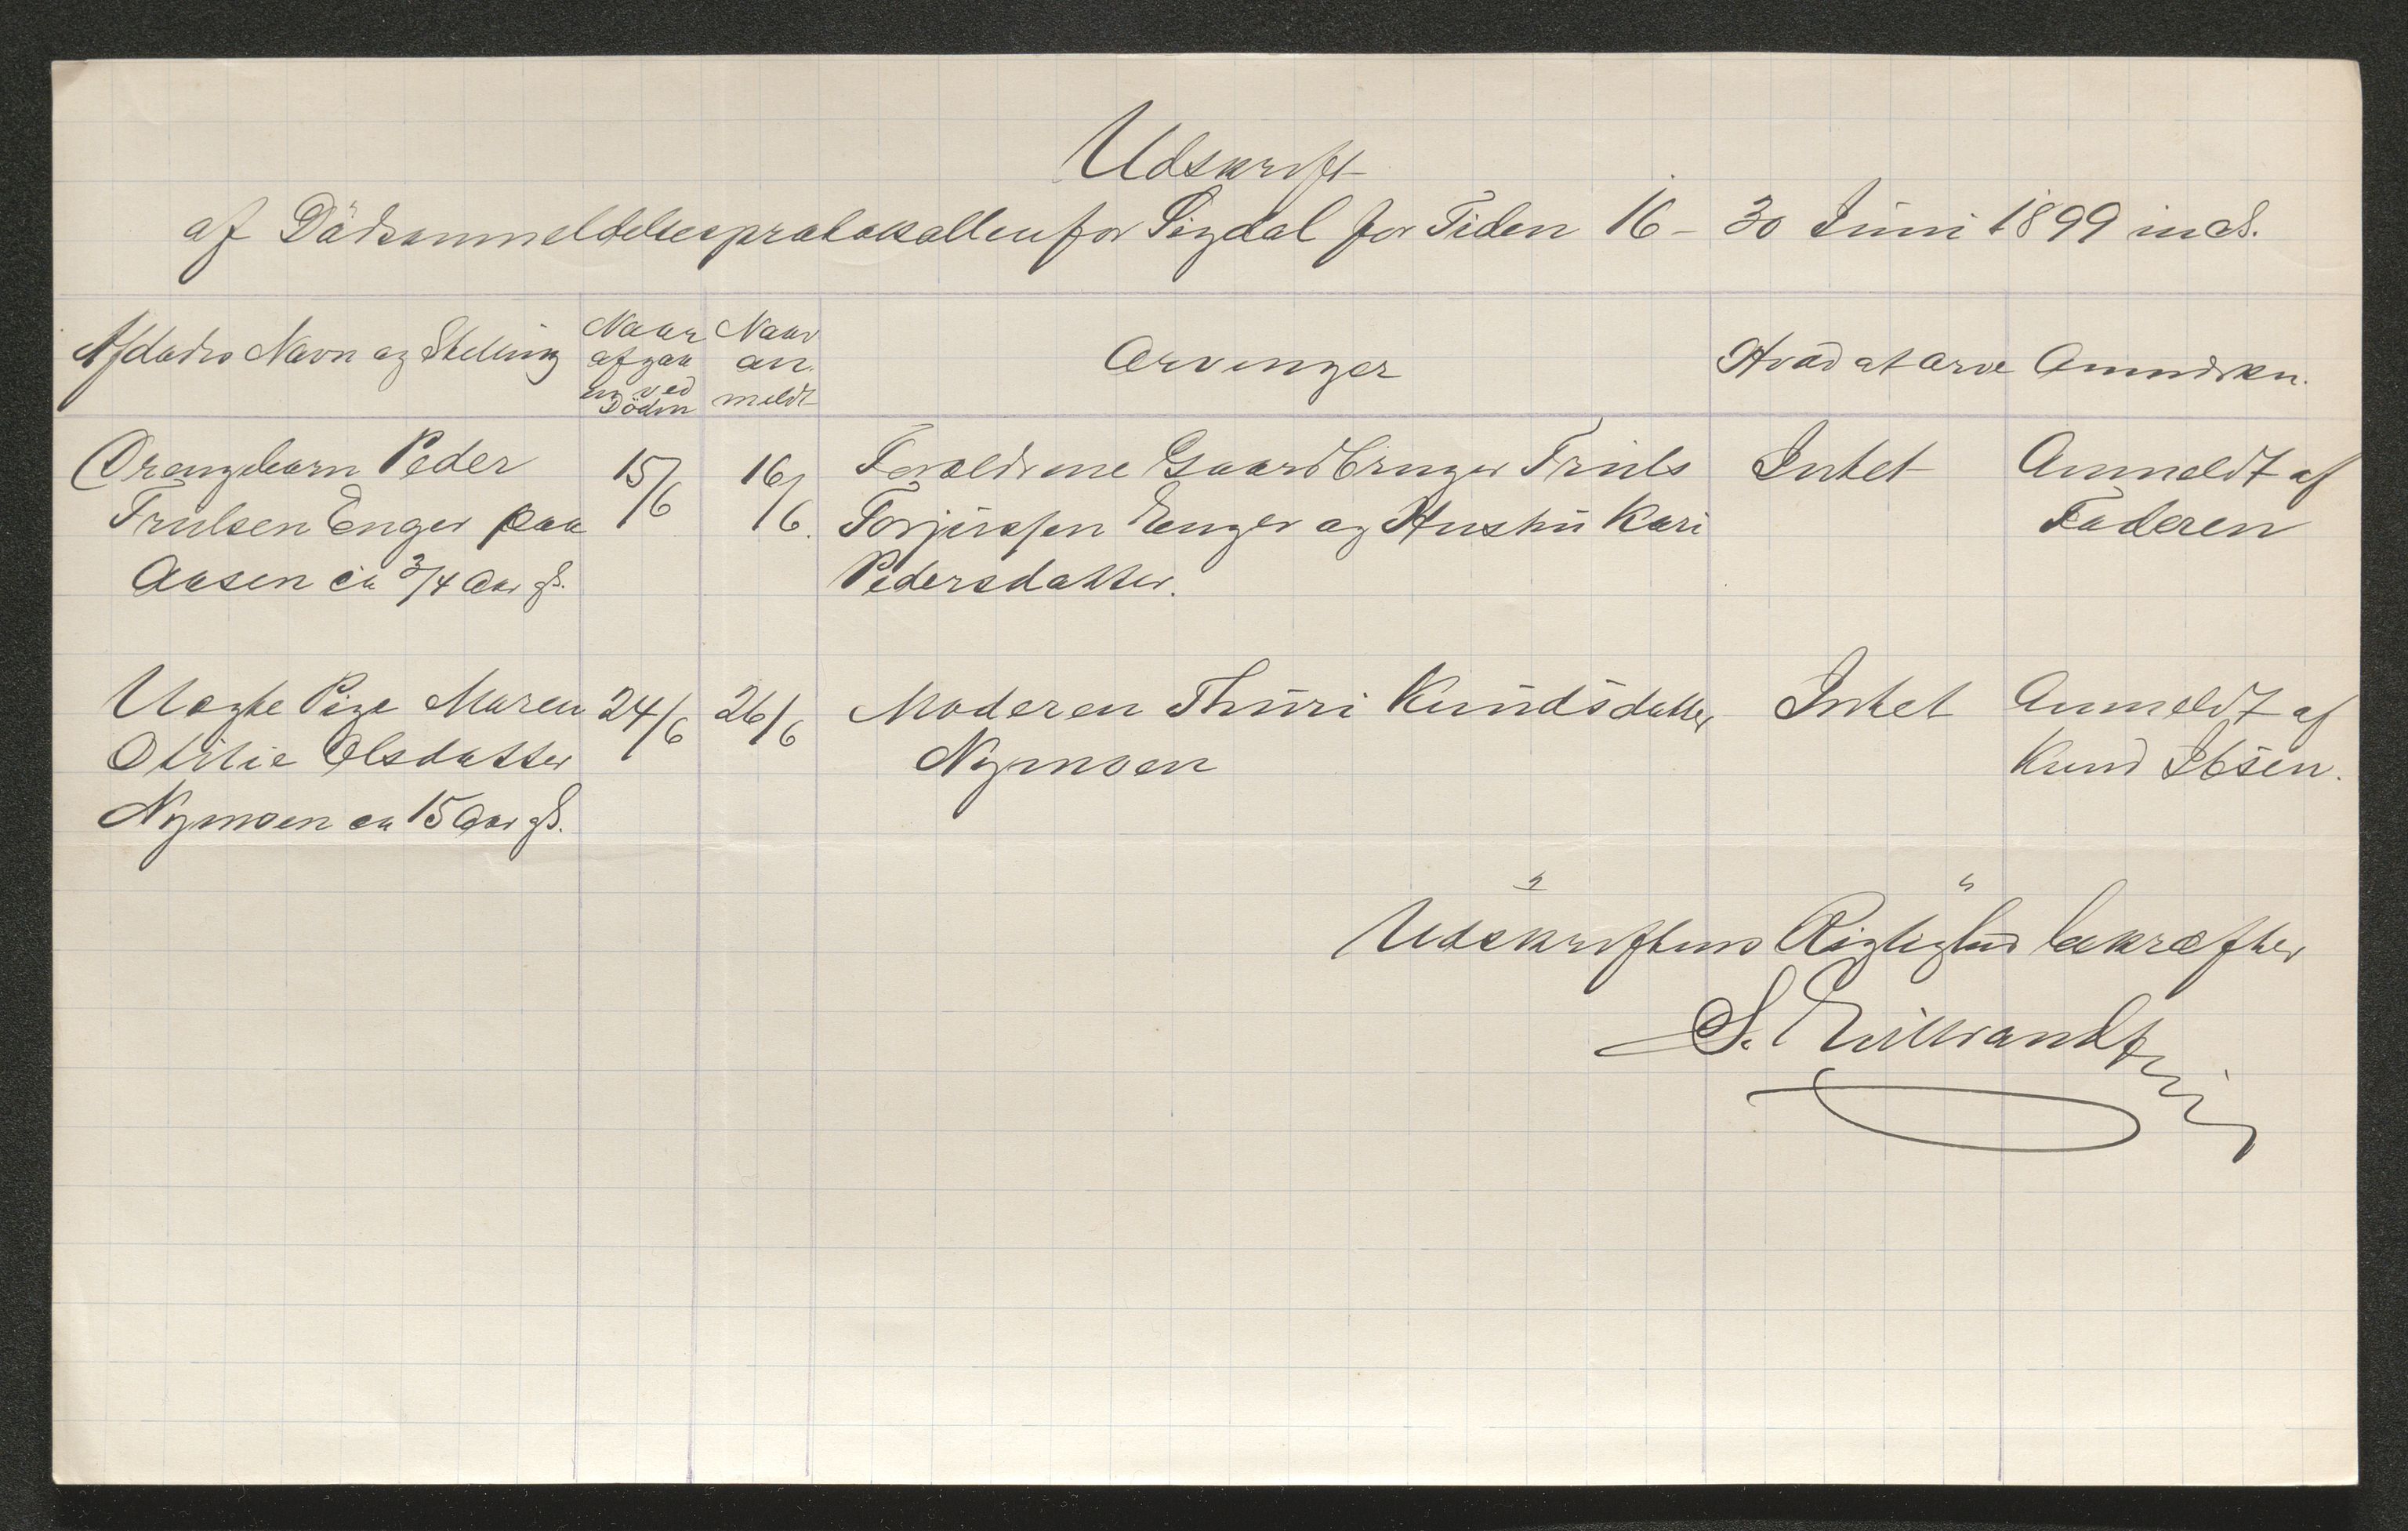 Udskrift
af Dödsanmeldelsesprotokollen for Sigdal for Tiden 16 - 30 Juni 1899 incl.
Afdødes Navn og Stilling
Naar afgaaen ved Döden
Naar anmeldt
Arvinger
Hvad at arve
Anmerkn.
Drengebarn Peder
Trulsen Enger paa
Aasen ca 3/4 Aar gl.
15/6
16/6.
Forældrene Gaardbruger Truls
Torjussen Enger og Hustru Kari
Pedersdatter.
Intet
Anmeldt af
Faderen
Ungte Pige Maren
Otilie Olsdatter
Nymoen ca 15 Aar gl.
24/6
26/6
Moderen Thuri Knudsdatter
Nymoen
Intet
Anmeldt af
Knud Ibsen.
Udskriftens Rigtighed bekræfter
S.